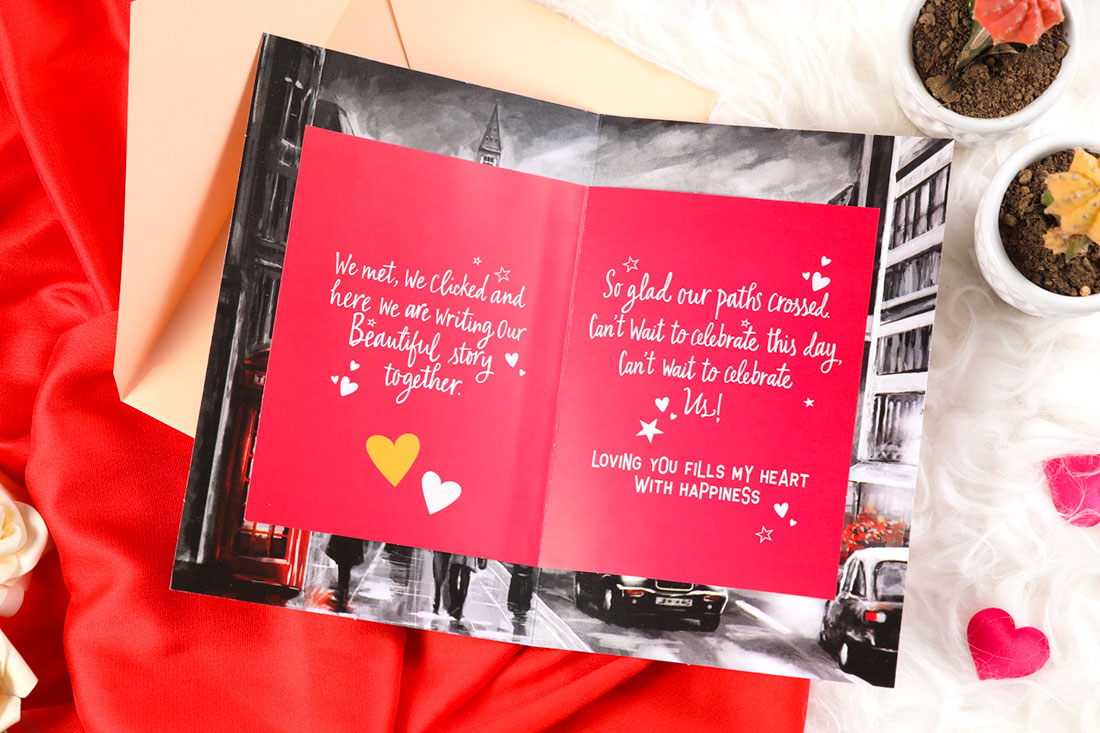 We met, we clicked and
here we are writing our
Beautiful story
together.
So glad our paths crossed.
Can't wait to celebrate this day,
Can't wait to celebrate
Us!
LOVING YOU FILLS MY HEART
WITH HAPPINESS